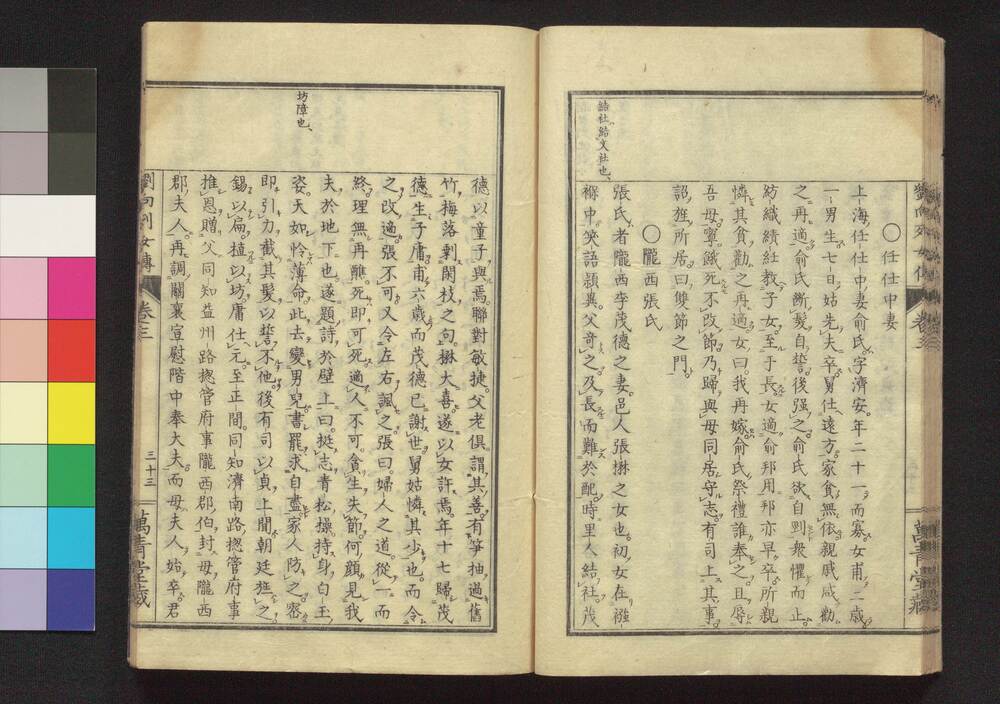 〇任仕中妻
上海任仕中妻俞氏字濟安年二十一而寡女甫二歲
一男生七日姑先夫卒舅仕遠方家貧無依親戚咸勸
之再適俞氏斷髮自誓後强之俞氏欲自剄衆懼而止
紡織績紝教子女至于長女適俞邦用邦亦早卒所親
憐其貧勸之再適女曰我再嫁俞氏祭禮誰奉之且辱
吾母寧餓死不改節乃歸與母同居守志有司上其事
詔旌所居曰雙節之門
〇隴西張氏
張氏者隴西李茂德之妻邑人張楙之女也初女在襁
褓中笑語頴異父竒之及長而難於配時里人結社茂
結社結文社也
德以童子與焉聯對敏捷父老俱謂其善有笋抽過舊
竹梅落剩閑枝之句楙大喜遂以女許焉年十七歸茂
德生子庸甫六歲而茂德已謝世舅姑憐其少也而令
之改適張不可又令左右諷之張曰婦人之道從一而
終理無再醮死即可死適人不可貪生失節何顔見我
夫於地下也遂題詩於壁上曰挺志青松操持身白玉
姿天如怜薄命此去變男兒書罷求自盡家人防之密
即引力截其髮以誓不他後有司以貞上聞朝廷旌之
錫以扁植以坊庸仕元至正間同知濟南路摠管府事
推恩贈父同知益州路摠管府事隴西郡伯封母隴西
郡夫人再調關襄宣慰階中奉大夫而母夫人始卒君
坊障也
劉向列女傳
卷三
三十三
萬青堂藏